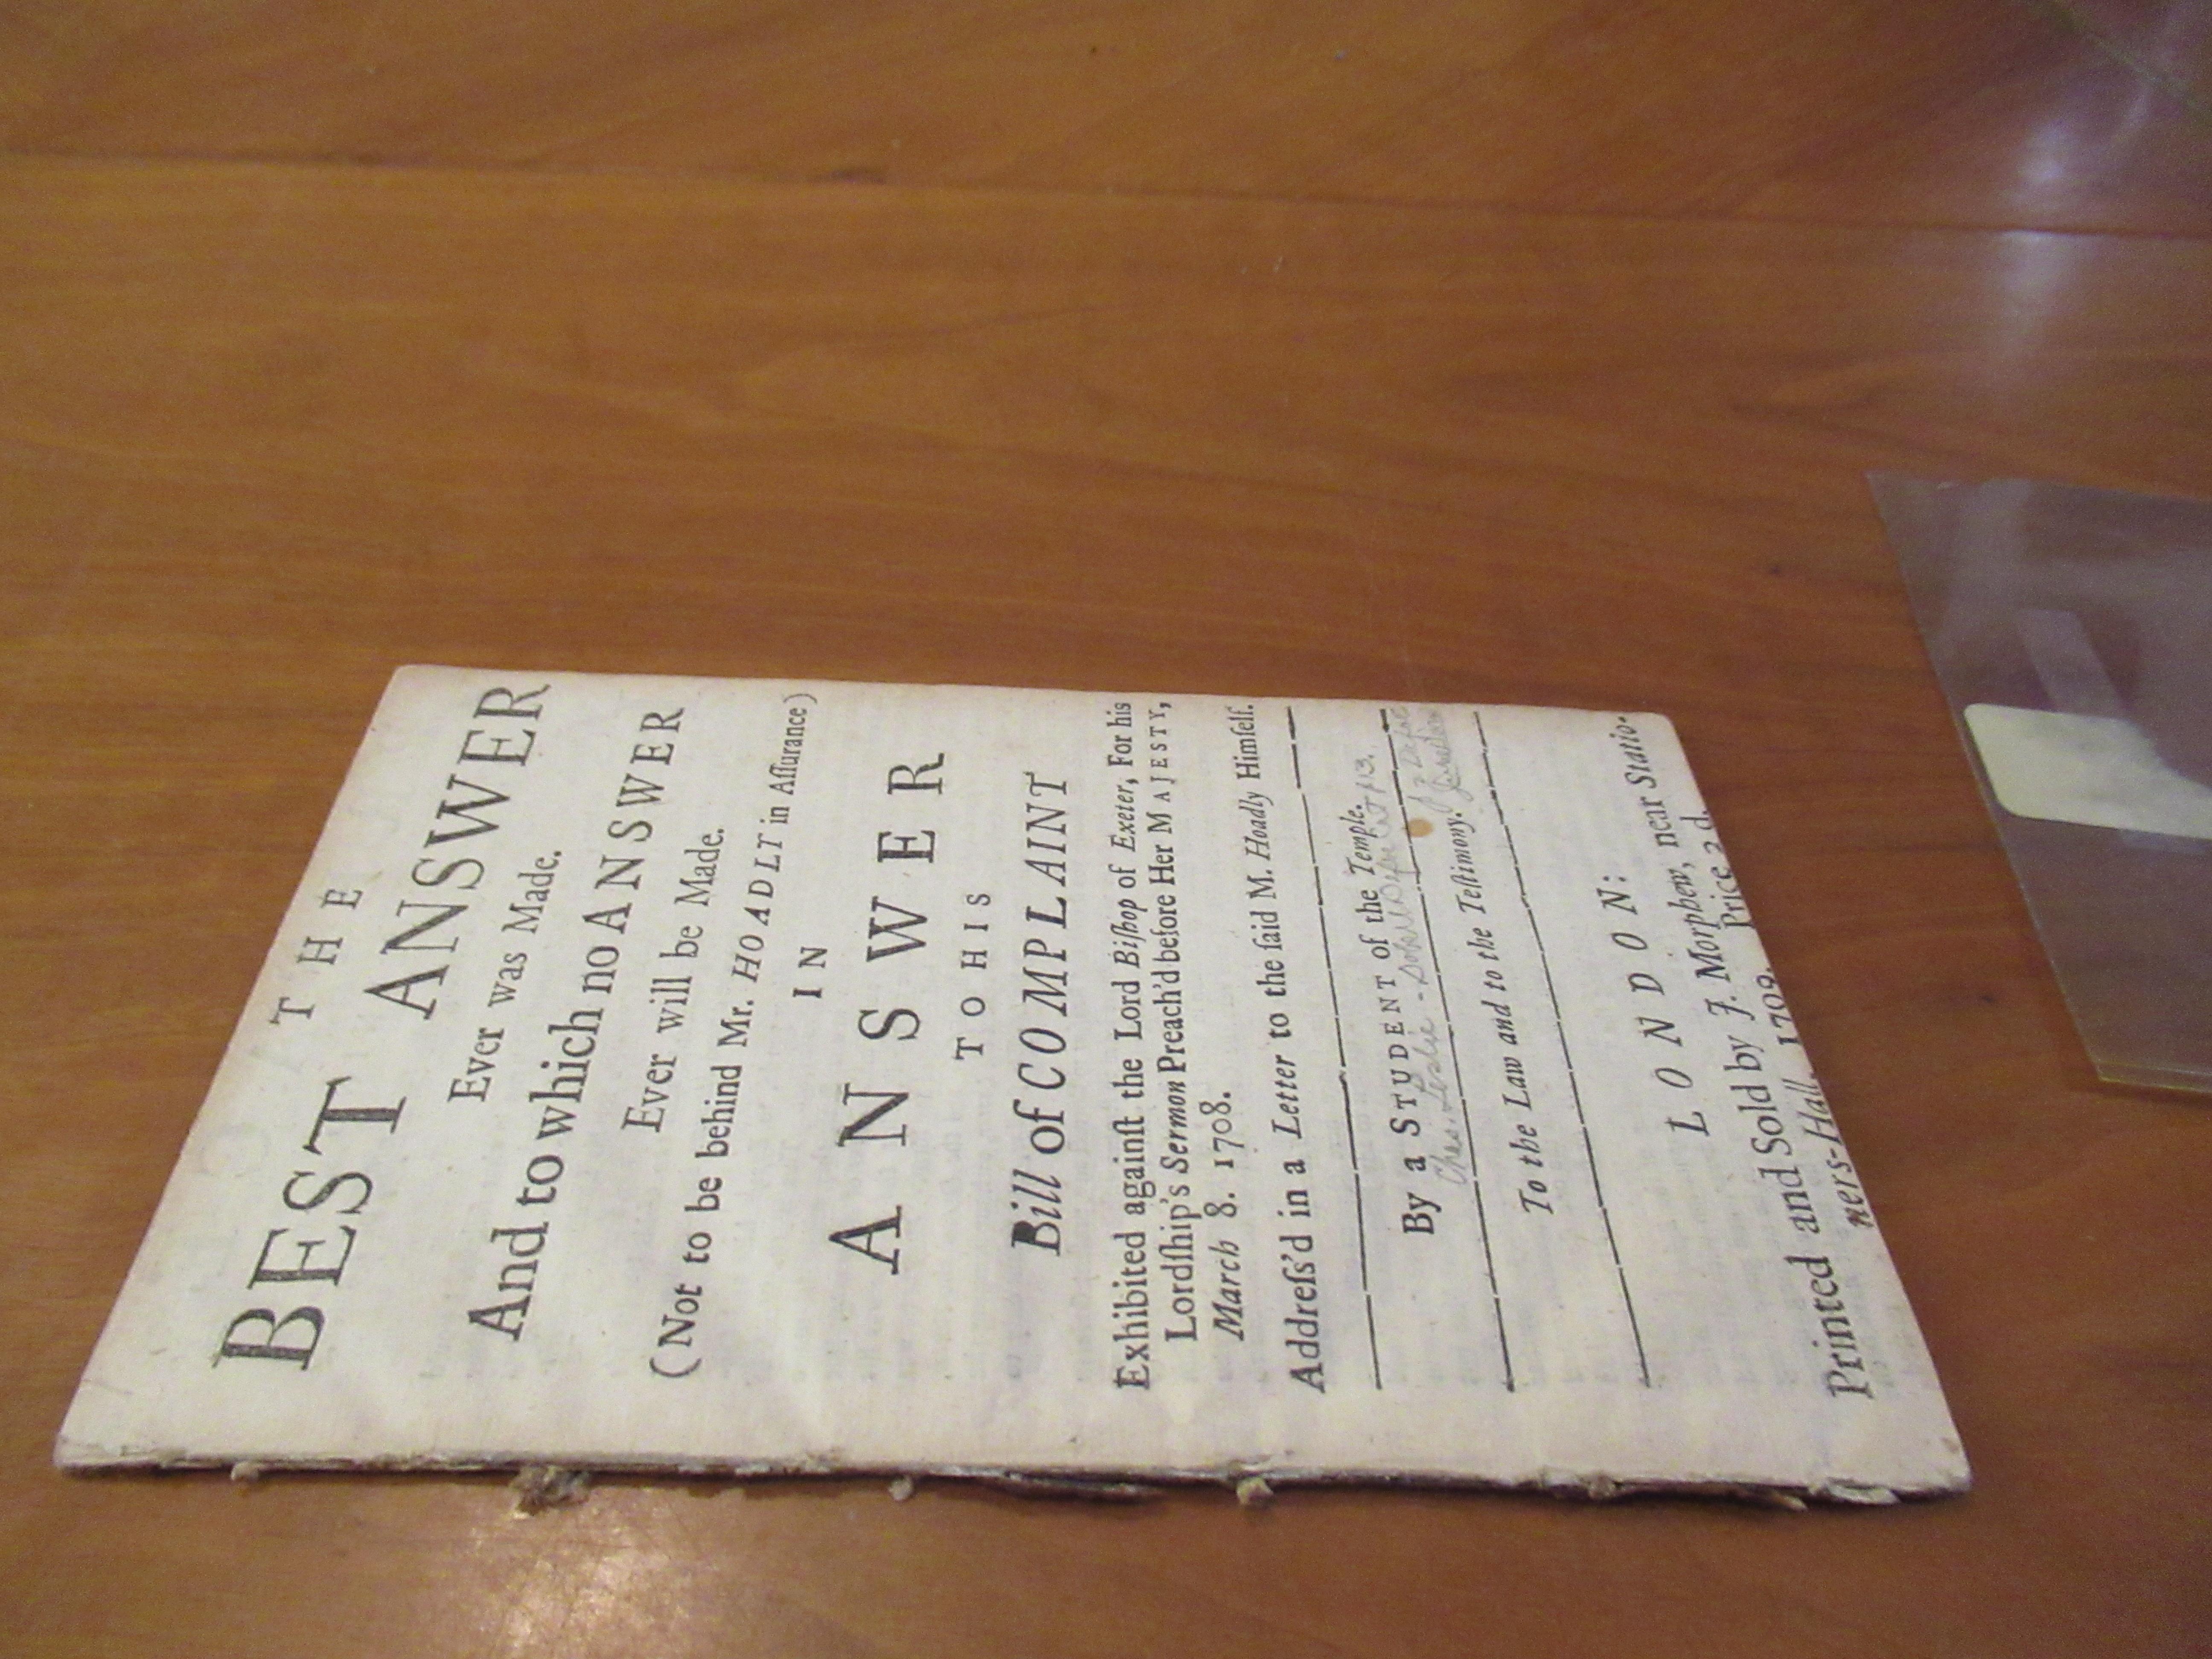 THE
BEST ANSWER
Ever was Made.
And to which no ANSWER
Ever will be Made.
(Not to be behind Mr. HOADLY in Aſſurance)
IN
ANSWER
TO HIS
Bill of COMPLAINT
Exhibited againſt the Lord Biſhop of Exeter, For his
Lordſhip's Sermon Preach'd before Her MAJESTY,
March 8. 1708.
Addreſs'd in a Letter to the ſaid M. Hoadly Himſelf.
By a STUDENT of the Temple.
Chas. Leslie -
To the Law and to the Teſtimony.
LONDON:
Printed and Sold by J. Morphew, near Statio-
ners-Hall, 1709. Price 2 d.